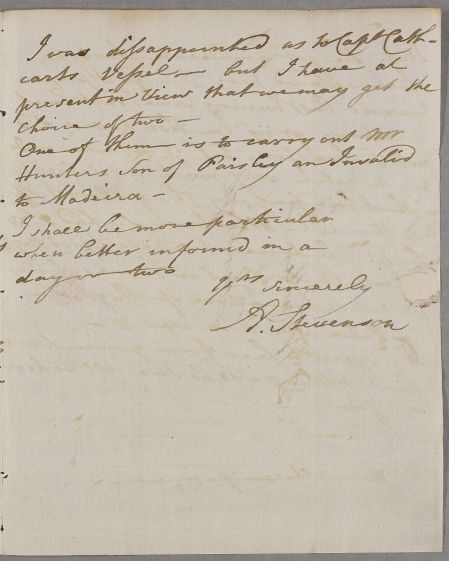 I was dissappointed as to Capt Cath-
carts Vessel — but I have at
present in View that we may get the
Choice of two —
One of them is to carry out Mr
Hunters son of Paisley an Invalid
to Madeira —
I shall be more particular
when better informd in a
day or two
yrs sincerely
A. Stevenson